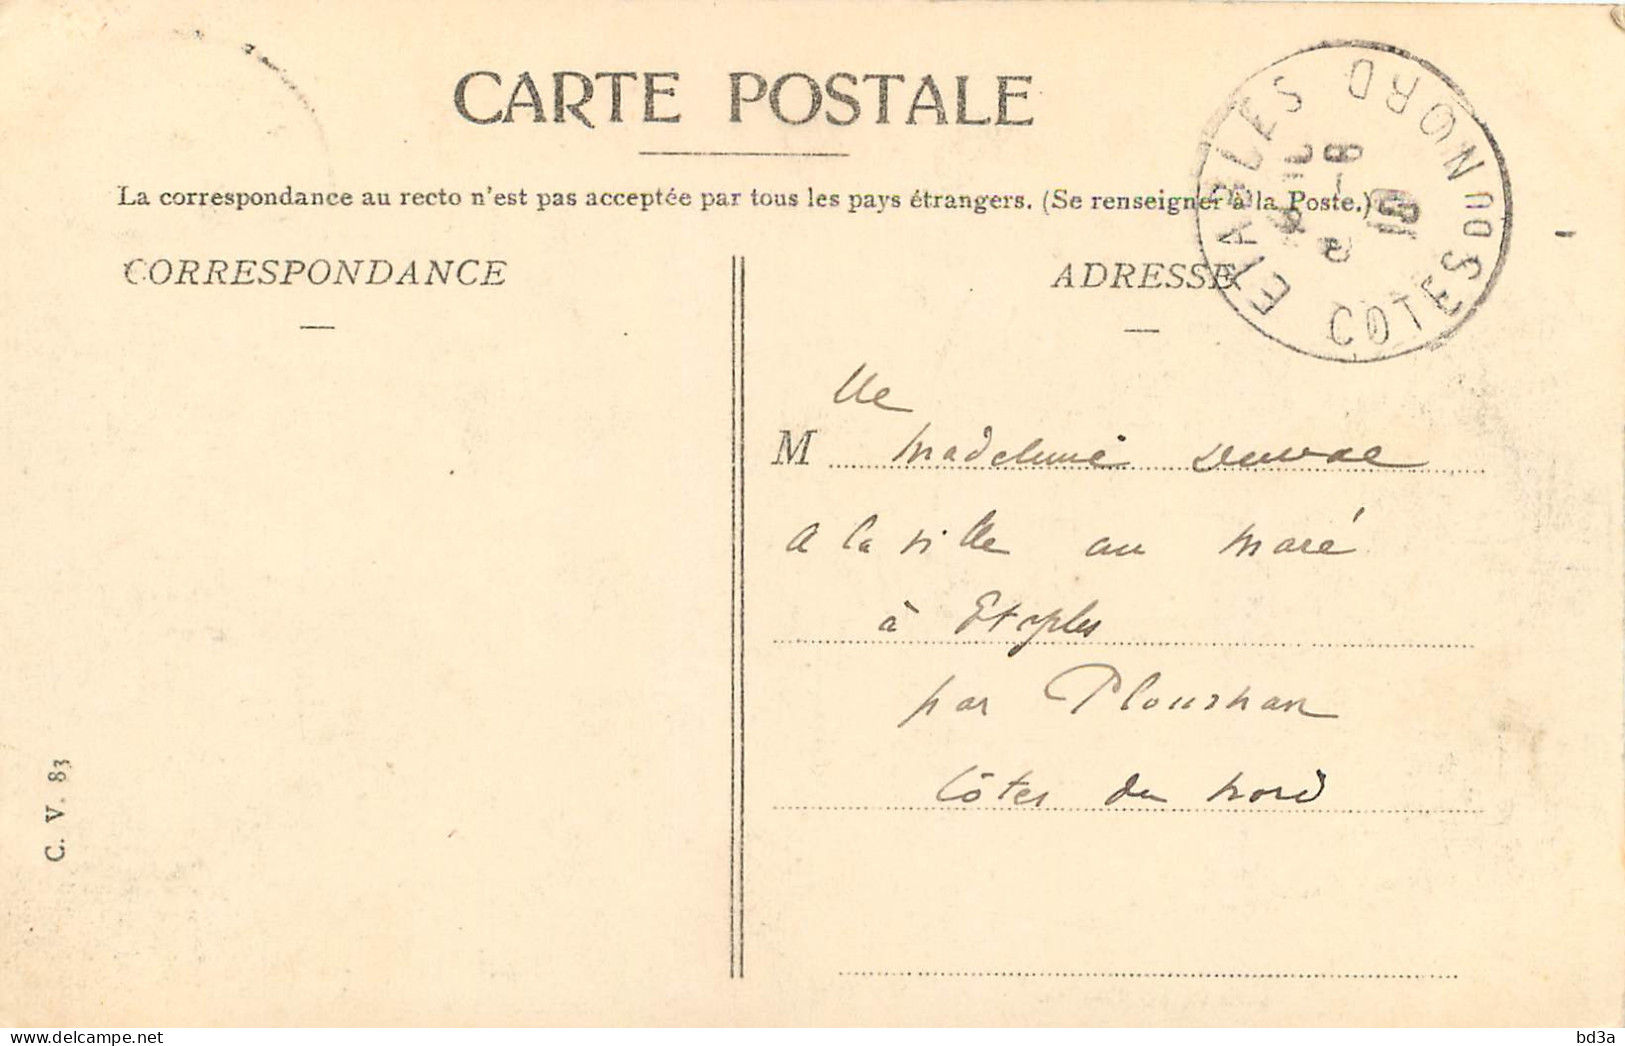 CARTE POSTALE
La correspondance au recto n'est pas acceptée par tous les pays étrangers. (Se renseigner à la Poste.)
CORRESPONDANCE
ADRESSE
ETABLES COTES DU NORD
lle
M Madeleine Duval
a la ville au Maré
à Etaples
par Plourhan
Côtes du Nord
C. V. 83
bd3a